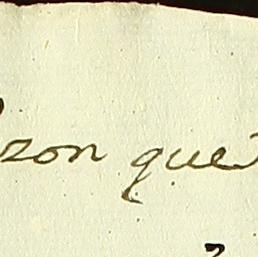 zon que